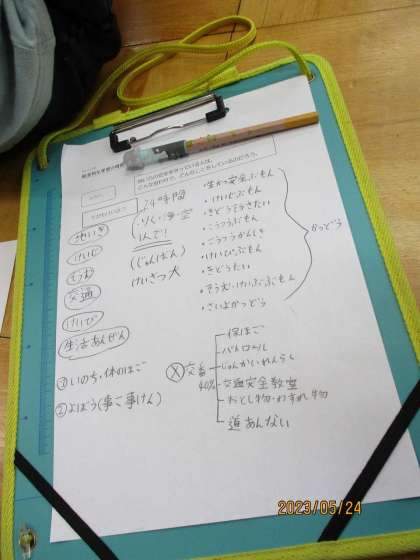 24時間
りく・海・空
1人で!
(じゅんばん)
けいさつ犬
ちいき
けいじ
そうむ
交通
けいび
生活あんぜん
①いのち・体のほご
②よぼう(事こ事けん)
・生かつ安全ぶもん
・けいじぶもん
・きどうそうさたい
・こうつうぶもん
・こうつうかんしき
・けいびぶもん
・きどうたい
・そうむけいむぶもん
・さいよかつどう
かつどう
交番
40%
保ほご
パトロール
じゅんかいれんらく
交通安全教室
おとし物・わすれ物
道あんない
2023/05/24